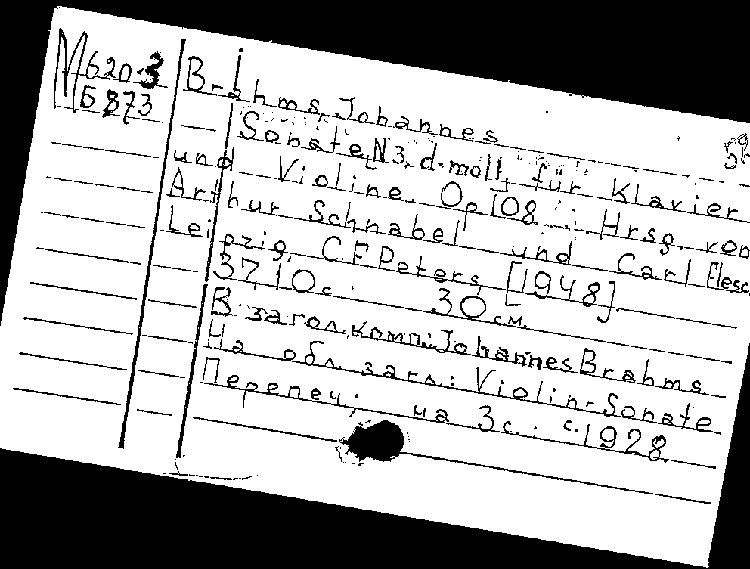 М620-3
Б873
Brahms, Johannes
Sonate, N3, d-moll, für Klavier
und Violine. Op. 108. Hrsg. von
Arthur Schnabel und Carl Flesch
Leipzig, C.F. Peters, [1948].
37, 10 с. 30 см.
В загол. комп.: Johannes Brahms
На обл. загл.: Violin-Sonate
Перепеч.; на 3 с. : с. 1928